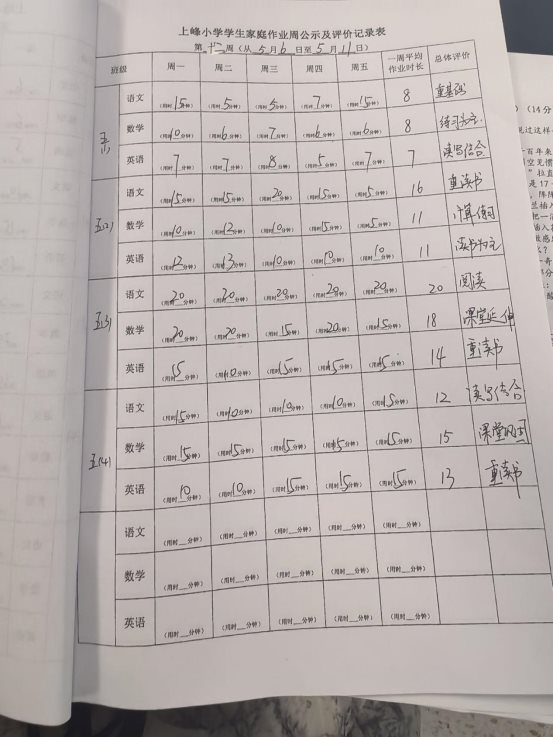 上峰小学学生家庭作业周公示及评价记录表
第十二周（从5月6日至5月11日）
班级 周一 周二 周三 周四 周五 一周平均作业时长 总体评价
五(1) 语文 （用时15分钟） （用时5分钟） （用时5分钟） （用时7分钟） （用时15分钟） 8 重基础
数学 （用时10分钟） （用时6分钟） （用时7分钟） （用时6分钟） （用时6分钟） 8 练习为主
英语 （用时7分钟） （用时7分钟） （用时8分钟） （用时5分钟） （用时7分钟） 7 读写结合
五(2) 语文 （用时15分钟） （用时15分钟） （用时20分钟） （用时15分钟） （用时5分钟） 16 重读书
数学 （用时10分钟） （用时12分钟） （用时10分钟） （用时15分钟） （用时5分钟） 11 计算
英语 （用时12分钟） （用时13分钟） （用时10分钟） （用时10分钟） （用时10分钟） 11 读书为主
五(3) 语文 （用时20分钟） （用时20分钟） （用时20分钟） （用时20分钟） （用时20分钟） 20 阅读
数学 （用时20分钟） （用时20分钟） （用时15分钟） （用时20分钟） （用时15分钟） 18 课堂延伸
英语 （用时15分钟） （用时10分钟） （用时15分钟） （用时15分钟） （用时15分钟） 14 重读书
五(4) 语文 （用时15分钟） （用时10分钟） （用时10分钟） （用时10分钟） （用时15分钟） 12 读写结合
数学 （用时15分钟） （用时15分钟） （用时15分钟） （用时15分钟） （用时15分钟） 15 课堂巩固
英语 （用时10分钟） （用时10分钟） （用时15分钟） （用时15分钟） （用时15分钟） 13 重读书
语文 （用时__分钟） （用时__分钟） （用时__分钟） （用时__分钟） （用时__分钟）
数学 （用时__分钟） （用时__分钟） （用时__分钟） （用时__分钟） （用时__分钟）
英语 （用时__分钟） （用时__分钟） （用时__分钟） （用时__分钟） （用时__分钟）